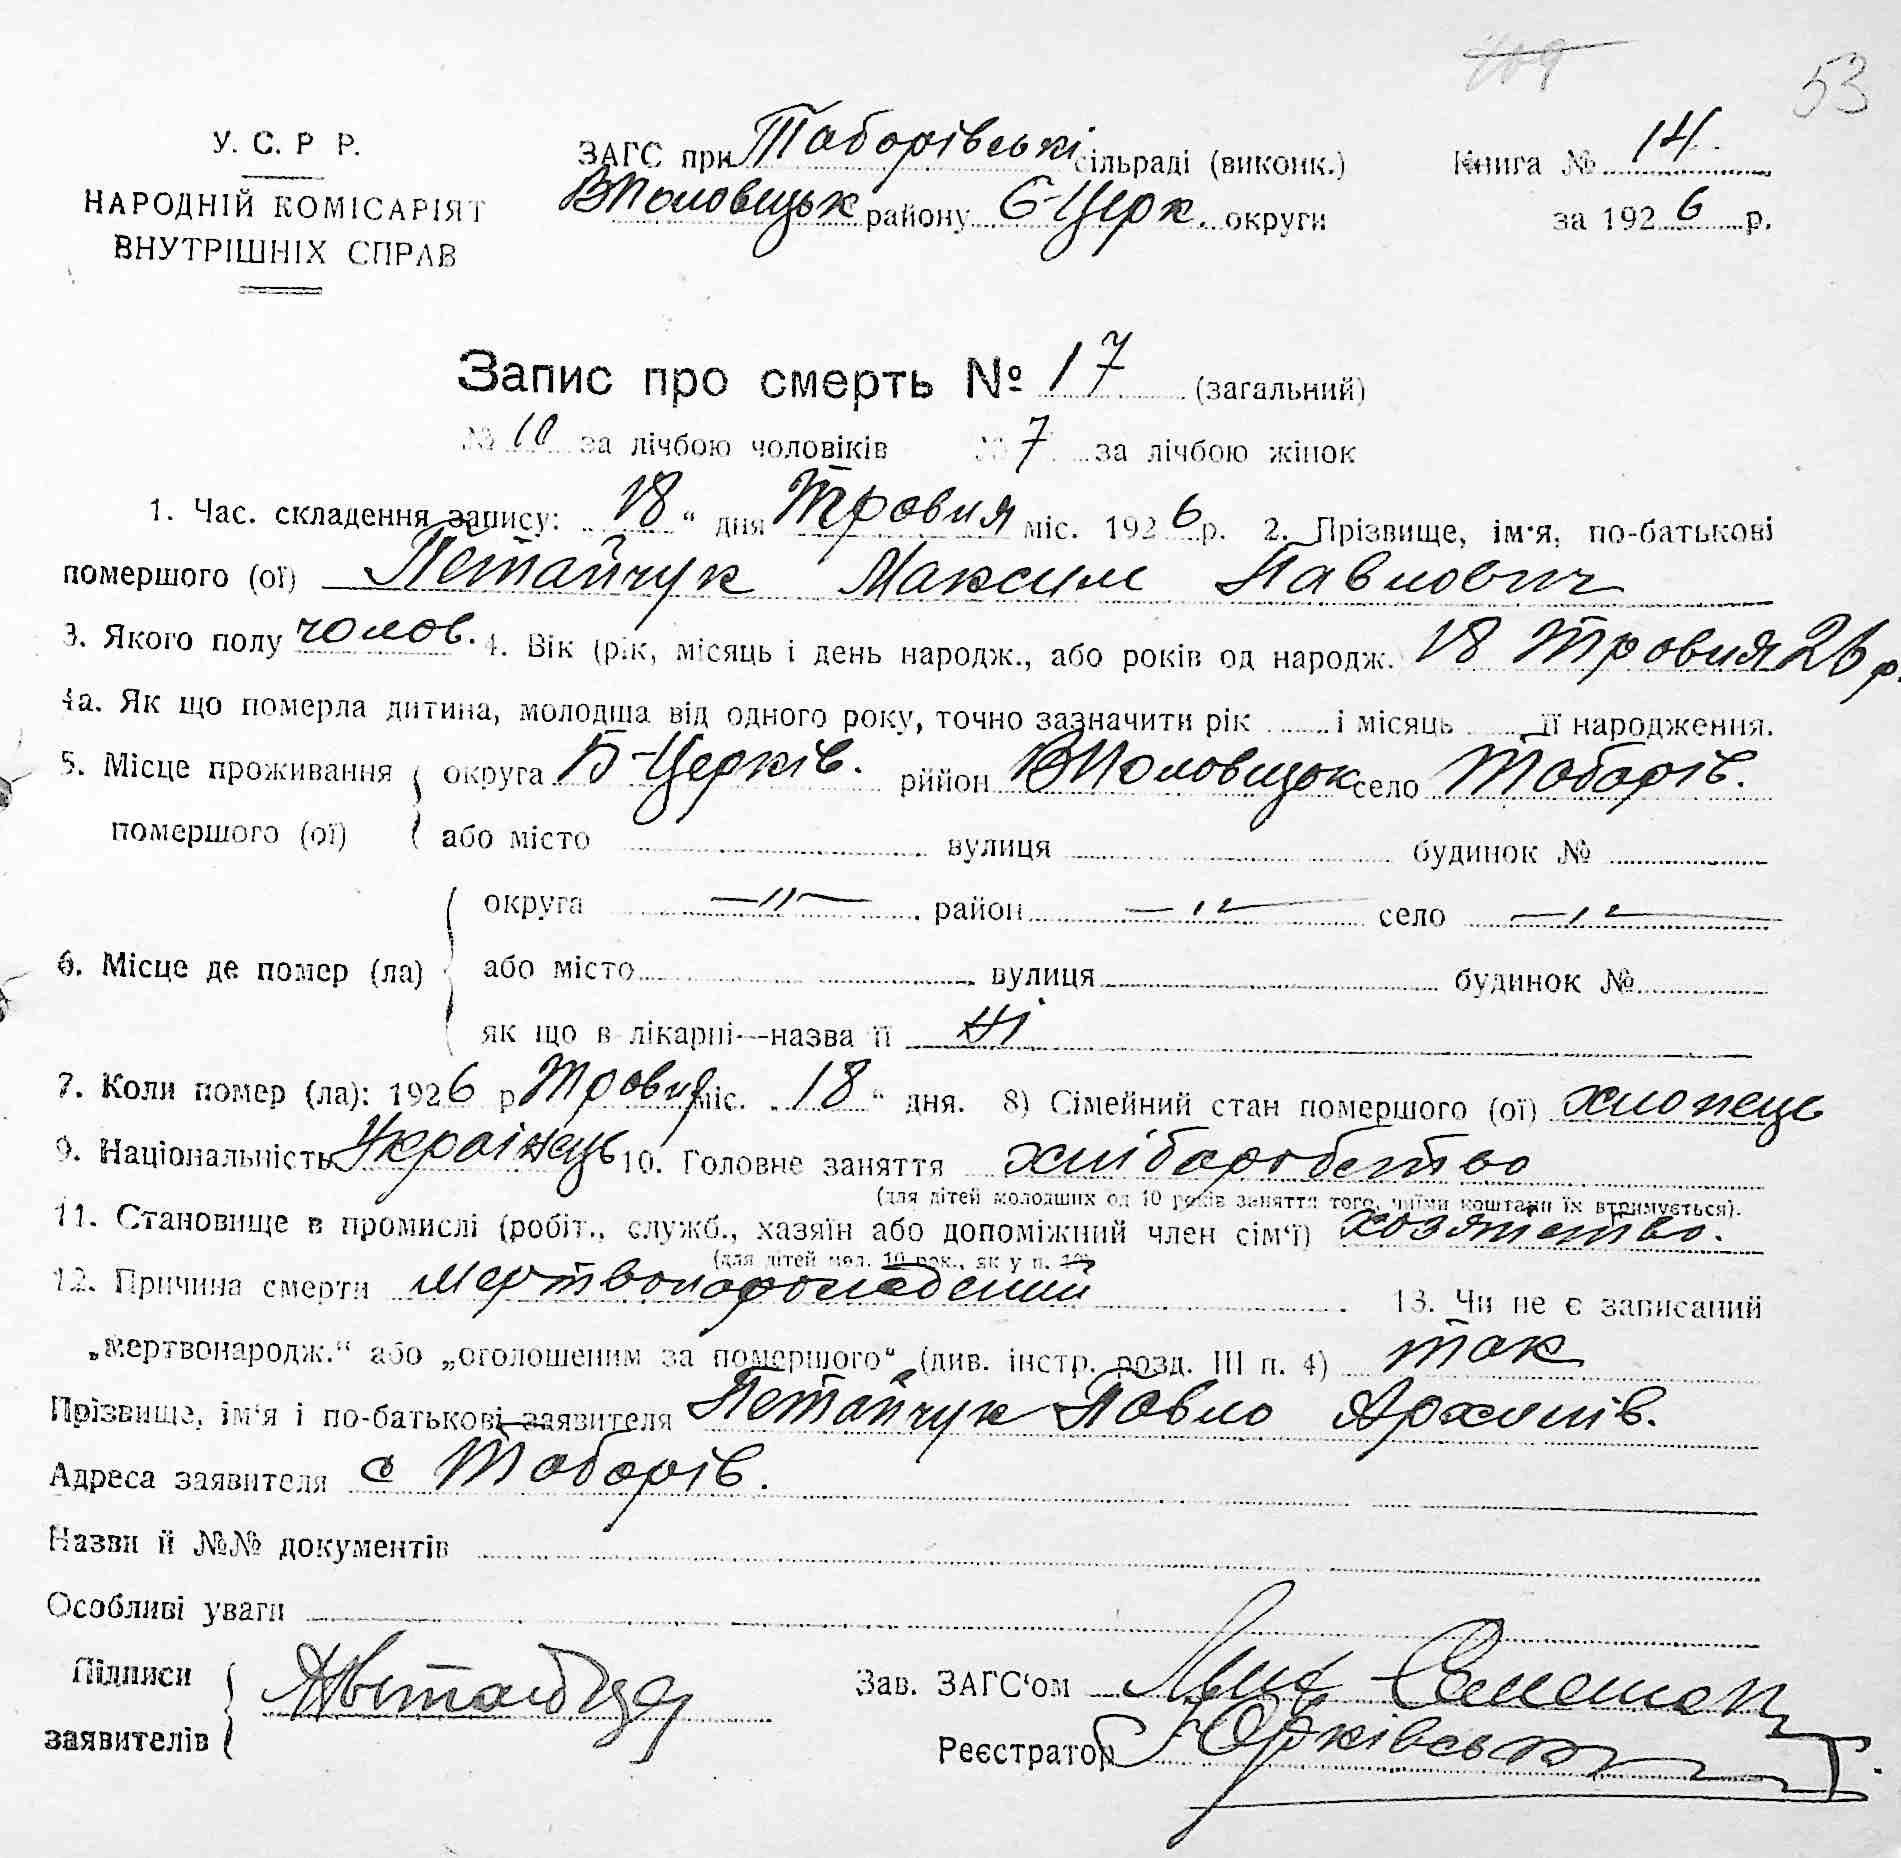 109
53
У. С. Р Р.
НАРОДНІЙ КОМІСАРІЯТ
ВНУТРІШНІХ СПРАВ
ЗАГС при Таборівські сільраді (виконк.)
ВПоловецьк району Б-Церк. округи
Книга № 14
за 1926 р.
Запис про смерть № 17 (загальний)
№ 10 за лічбою чоловіків № 7 за лічбою жінок
1. Час. складення запису: 18 “ дня Тровня міс. 1926 р. 2. Прізвище, ім‘я, по-батькові
помершого (ої) Петайчук Максим Павлович
3. Якого полу чолов. 4. Вік (рік, місяць і день народж., або років од народж. 18 Тровня 26 р.
4а. Як що померла дитина, молодша від одного року, точно зазначити рік і місяць її народження.
5. Місце проживання помершого (ої) округа Б-Церків. рййон ВПоловецьк село Таборів.
або місто вулиця будинок №
6. Місце де помер (ла) округа —"— район —"— село —"—
або місто вулиця будинок №
як що в лікарні—назва її Ні
7. Коли помер (ла): 1926 р Тровня міс. 18 “ дня. 8) Сімейний стан помершого (ої) хлопець
9. Національність Українець 10. Головне заняття хліборобство
(для дітей молодших од 10 років заняття того, чиїми коштами їх втримується).
11. Становище в промислі (робіт., служб., хазяїн або допоміжний член сім‘ї) хозяйство.
(для дітей мол. 10 рок., як у п. 10)
12. Причина смерти мертвонарожедений 13. Чи не є записаний
„мертвонародж.“ або „оголошеним за помершого“ (див. інстр. розд. III п. 4) так
Прізвище, ім‘я і по-батькові заявителя Петайчук Павло Архипів.
Адреса заявителя с Таборів.
Назви й №№ документів
Особливі уваги
Підписи
заявителів
Зав. ЗАГС‘ом
Реєстратор